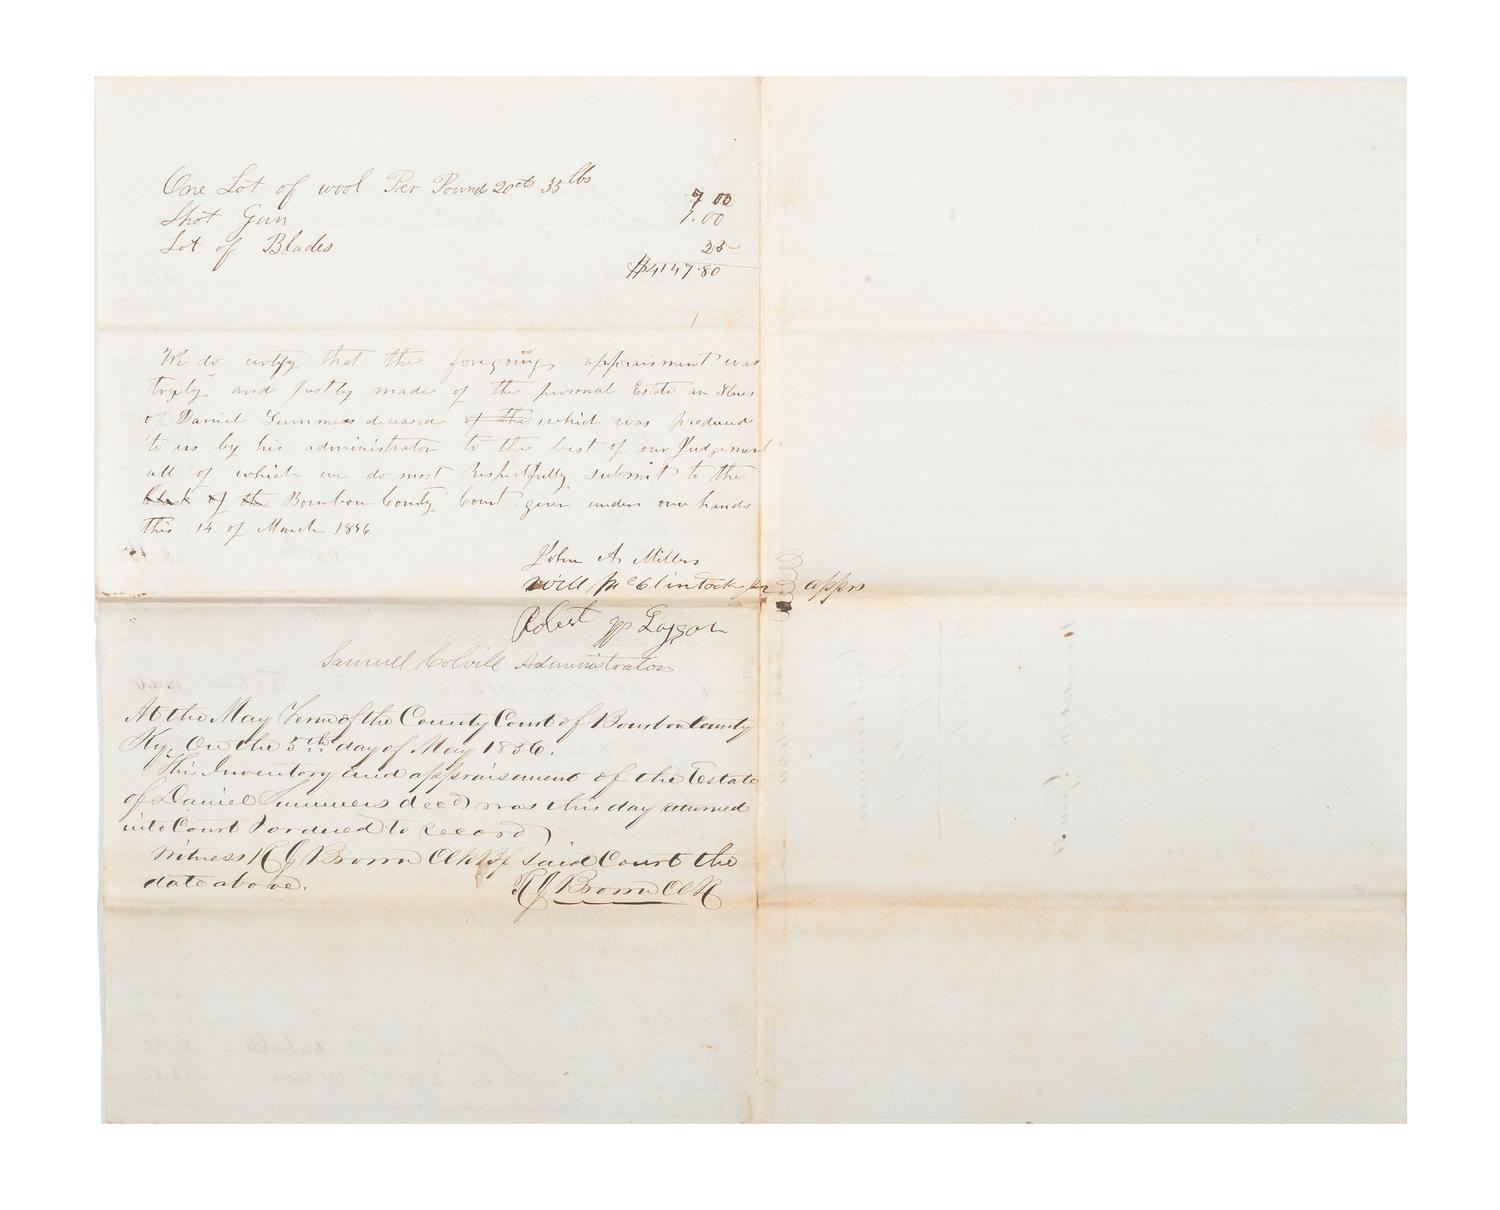 One Lot of wool Per Pound 20cts 35 lbs 7 00
Shot Gun 1.00
Lot of Blades 25
$4147.80
We do certify that the foregoing appraisment was
truly and justly made of the personal Estate an Slaves
of Daniel Summers deceased of the which was produced
to us by his administrator to the best of our Judgement
all of which we do most Respectfully submit to the
Clerk of the Bourbon County Court given under our hands
this 14 of March 1856
John A. Millers
Will McClintock Jr apprs
Robert
Samuel Colvill Administrator
At the May Term of the County Court of Bourbon County
Ky, On the 5th day of May 1856.
This Inventory and appraisement of the Estate
of Daniel Summers decd was this day returned
into Court & ordered to record
Witness R J Brown Clk of Said Court the
date above.
R J Brown Clk